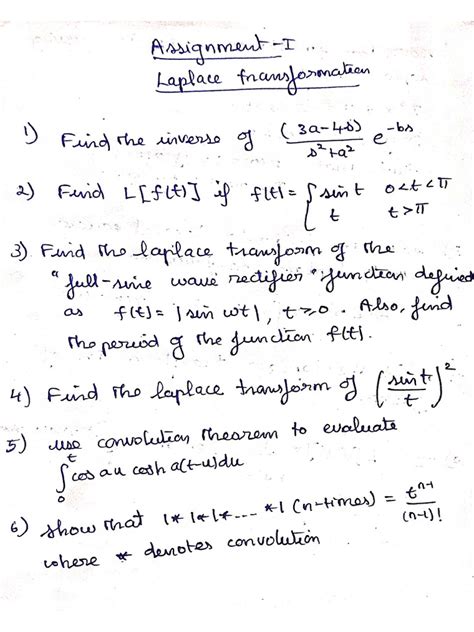 Assignment-I
Laplace transformation
1) Find the inverse of (3a-4s)/(s²+a²) e^-bs
2) Find L[f(t)] if f(t) = { sin t   0<t<π
t   t>π
3) Find the laplace transform of the
"full-sine wave rectifier" function defined
as f(t) = |sin wt|, t≥0. Also, find
the period of the function f(t).
4) Find the laplace transform of (sin t/t)²
5) use convolution theorem to evaluate
∫₀ᵗ cos au cosh a(t-u)du
6) show that 1*1*1*....*1 (n-times) = t^(n-1)/(n-1)!
where * denotes convolution